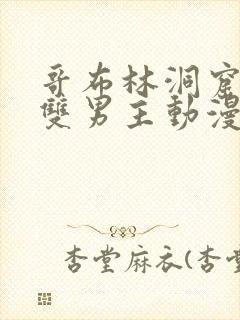 哥布林洞窟
雙男主動漫
杏堂麻衣(杏堂